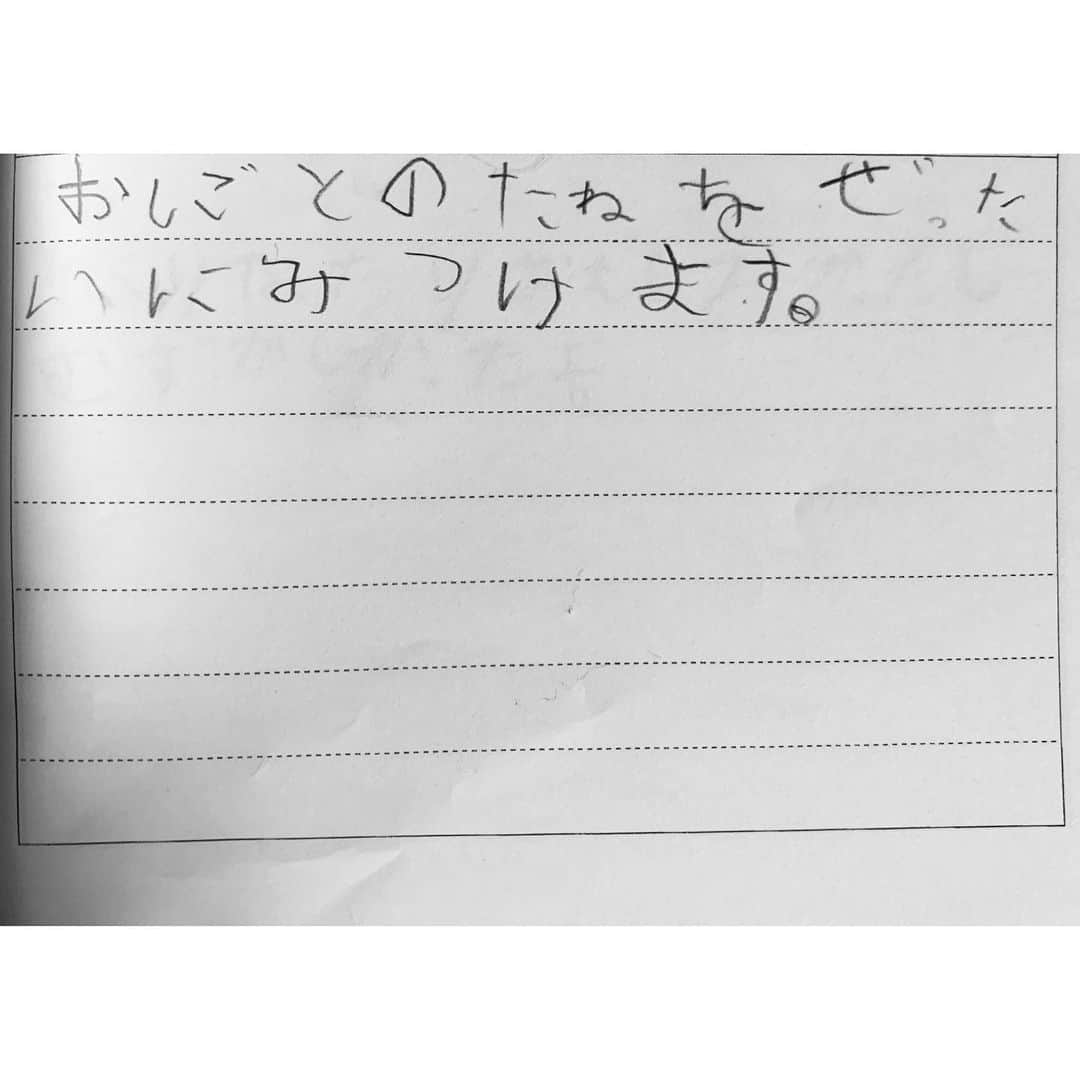 おしごとのたねをぜった
いにみつけます。